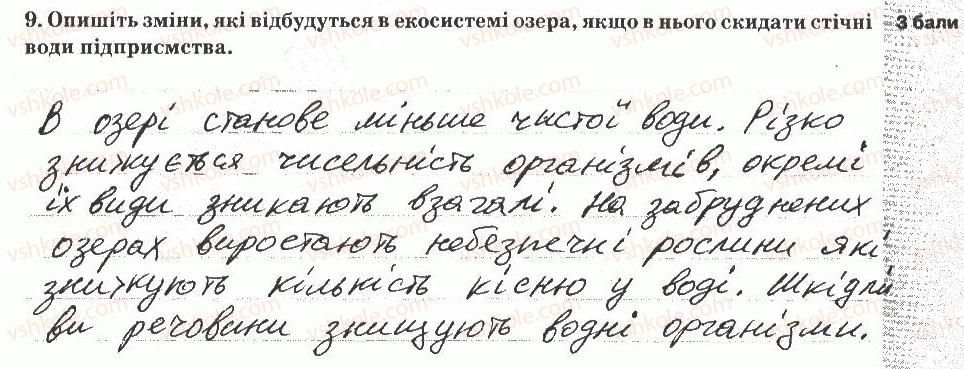 9. Опишіть зміни, які відбудуться в екосистемі озера, якщо в нього скидати стічні
води підприємства.
3 бали
В озері станове міньше чистої води. Різко
знижується чисельність організмів, окремі
їх види зникають взагалі. На забруднених
озерах виростають небезпечні рослини які
знижують кільність кісню у воді. Шкідли
ви речовини знищують водні організми.